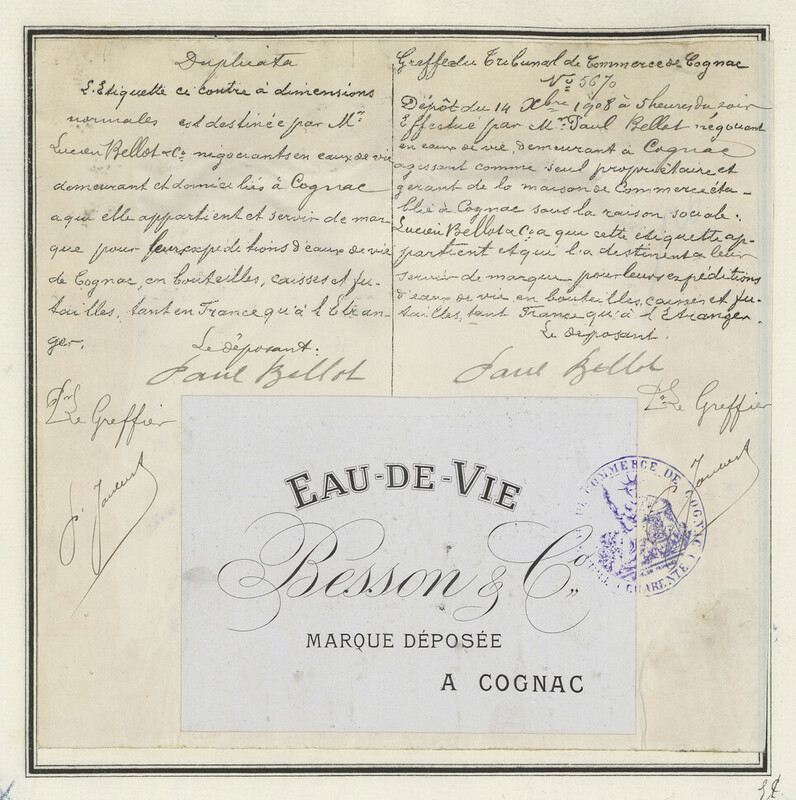 Duplicata
L'Etiquette ci contre à dimensions
normales est destinée par Mrs
Lucien Bellot & Co négociants en eaux de vie
demeurant et domiciliés à Cognac
a qui elle appartient et servir de mar-
que pour leurs expéditions d'eaux de vie
de Cognac, en bouteilles, caisses et fu-
tailles, tant en France qu'à l'Etran-
ger.
Le déposant:
Paul Bellot
Pr Le Greffier
Greffe du Tribunal de Commerce de Cognac
No 5670
Dépôt du 14 Xbre 1908 à 5 heures du soir
Effectué par Mr Paul Bellot négociant
en eaux de vie, demeurant à Cognac
agissant comme seul propriétaire et
gérant de la maison de Commerce éta-
blie à Cognac sous la raison sociale:
Lucien Bellot & Co a qui cette étiquette ap-
partient et qui l'a destinent a leur
servir de marque pour leurs expéditions
d'eaux de vie en bouteilles, caisses et fu-
tailles, tant France qu'à l'Etranger.
Le déposant.
Paul Bellot
Pr Le Greffier
EAU-DE-VIE
Besson & Co,,
MARQUE DÉPOSÉE
A COGNAC
COMMERCE DE COGNAC
CHARENTE